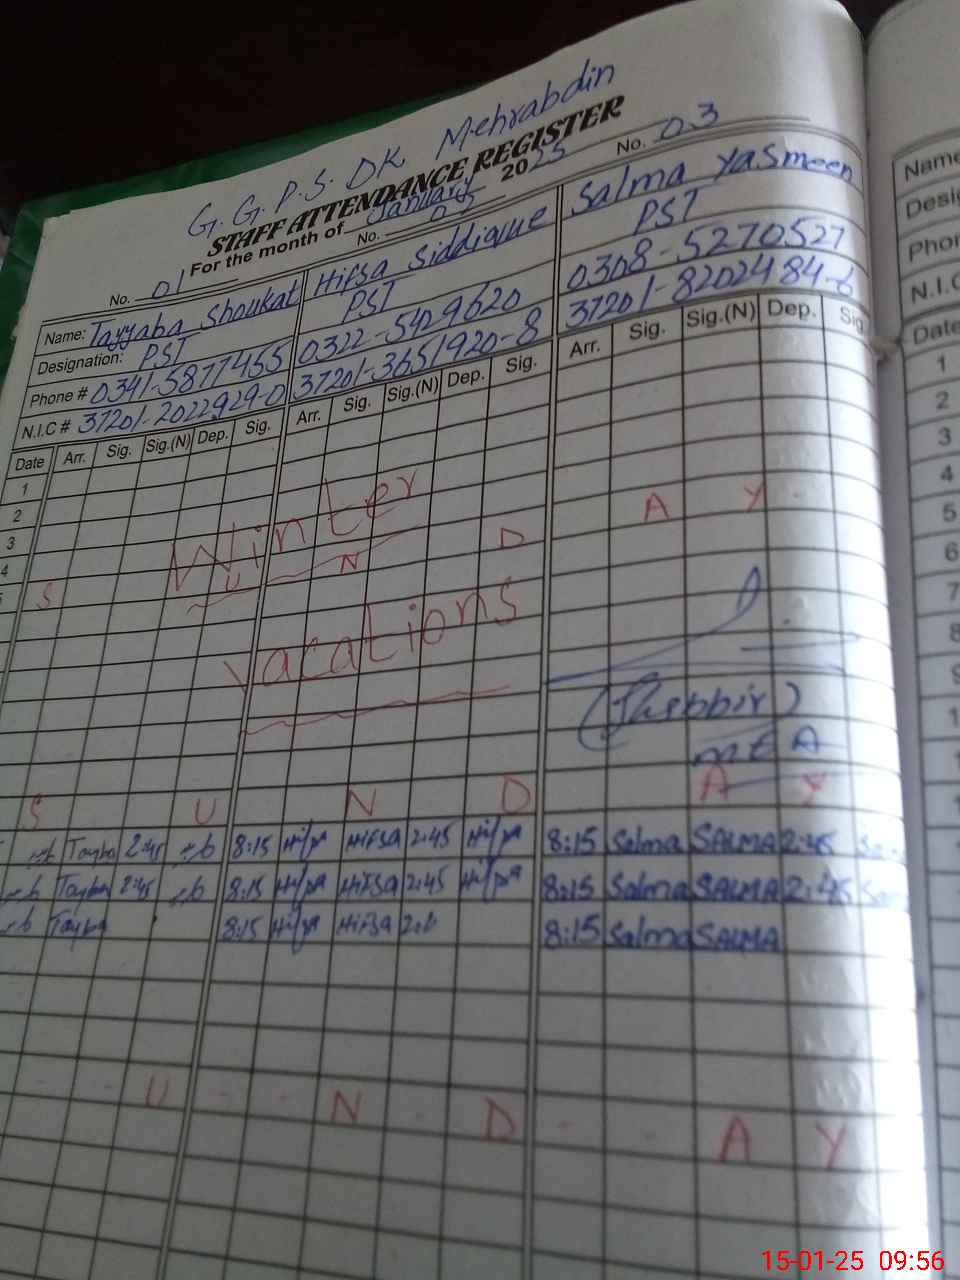 G.G.P.S. DK Mehrabdin
STAFF ATTENDANCE REGISTER
For the month of January 2025
No. 01 No. No. 03
Name: Tayyaba Shoukat Hifsa Siddique Salma Yasmeen
Designation: PST PST PST
Phone # 0341-5877455 0322-5429620 0308-5270527
N.I.C # 37201-2022929-0 37201-3651920-8 37201-8202484-6
Date Arr. Sig. Sig.(N) Dep. Sig. Arr. Sig. Sig.(N) Dep. Sig. Arr. Sig. Sig.(N) Dep. Sig
1
2
3
4
Winter
S U N D A Y
vacations
(Shabbir)
MEA
S U N D A Y
Tayba 2:45 8:15 Hifsa HIFSA 2:45 Hifsa 8:15 Salma SALMA 2:45
Tayba 2:45 8:15 Hifsa HIFSA 2:45 Hifsa 8:15 Salma SALMA 2:45
Tayba 8:15 Hifsa HIFSA 8:15 Salma SALMA
U N D A Y
Name
Date
1
2
3
4
5
6
7
8
15-01-25 09:56